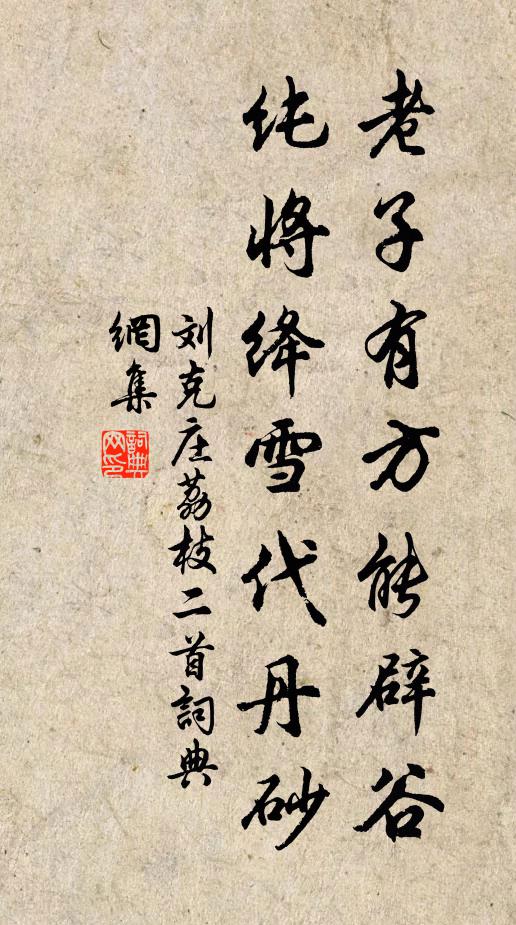 老子有方能辟谷
纯将绛雪代丹砂
刘克庄荔枝二首詞典
網集
詞典
网印